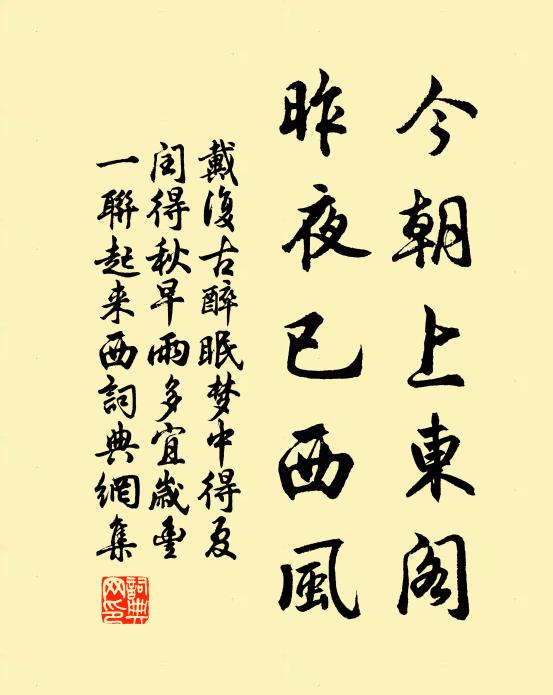 今朝上東閣
昨夜已西風
戴復古醉眠梦中得夏
閏得秋早雨多宜歲豐
一聯起来西詞典網集
詞典
网印